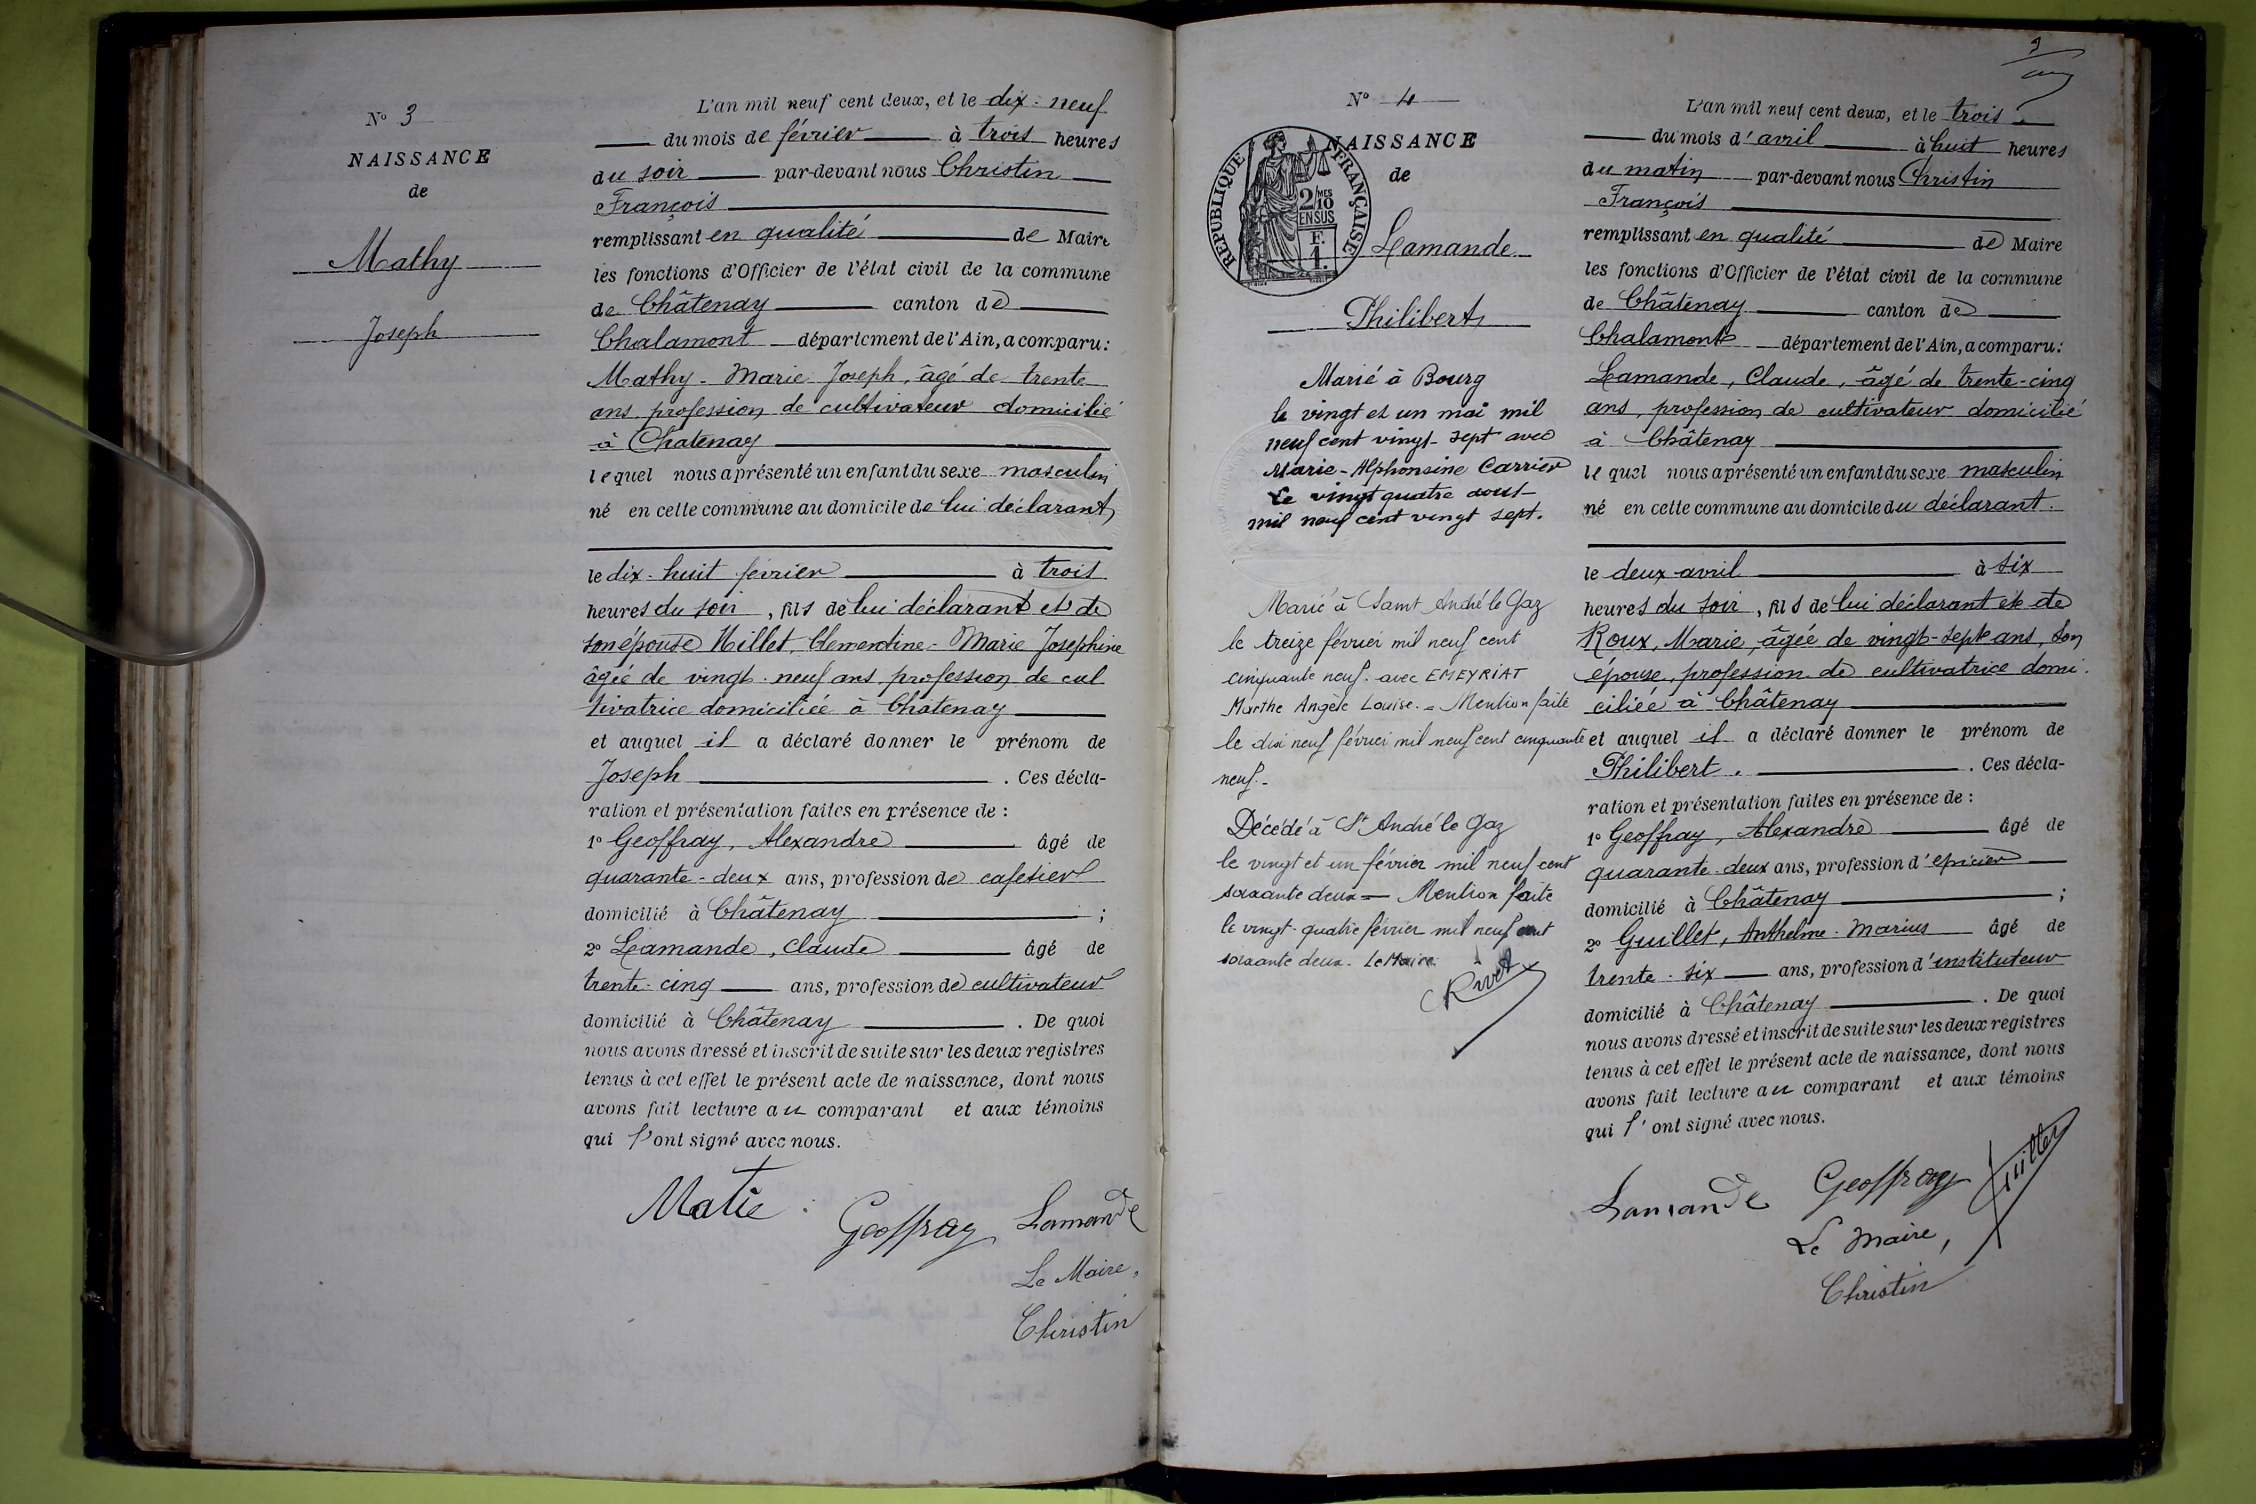 N° 3
NAISSANCE
de
Mathy
Joseph
L'an mil neuf cent deux, et le dix-neuf
du mois de février à trois heures
du soir par-devant nous Christin
François
remplissant en qualité de Maire
les fonctions d'Officier de l'état civil de la commune
de Châtenay canton de
Chalamont département de l'Ain, a comparu:
Mathy - Marie Joseph, âgé de trente
ans profession de cultivateur domicilié
à Chatenay
lequel nous a présenté un enfant du sexe masculin
né en cette commune au domicile de lui déclarant
le dix-huit février à trois
heures du soir, fils de lui déclarant et de
son épouse Millet, Clementine - Marie Josephine
âgée de vingt-neuf ans profession de cul
tivatrice domiciliée à Châtenay
et auquel il a déclaré donner le prénom de
Joseph. Ces décla-
ration et présentation faites en présence de :
1° Geoffray, Alexandre âgé de
quarante-deux ans, profession de cafetier
domicilié à Châtenay ;
2° Lamande, Claude âgé de
trente-cinq ans, profession de cultivateur
domicilié à Châtenay. De quoi
nous avons dressé et inscrit de suite sur les deux registres
tenus à cet effet le présent acte de naissance, dont nous
avons fait lecture au comparant et aux témoins
qui l'ont signé avec nous.
Matie
Geoffray Lamande
Le Maire,
Christin
N° 4
NAISSANCE
de
REPUBLIQUE FRANÇAISE
2/MES
10
EN SUS
F.
1.
Lamande
Philibert
Marié à Bourg
le vingt et un mai mil
neuf cent vingt-sept avec
Marie-Alphonsine Carrier
Le vingt quatre aout
mil neuf cent vingt sept.
Marié à Saint André le Gaz
le treize février mil neuf cent
cinquante neuf. avec EMEYRIAT
Marthe Angèle Louise. - Mention faite
le dix neuf février mil neuf cent cinquante
neuf.-
Décédé à St André le Gaz
le vingt et un février mil neuf cent
soixante deux = Mention faite
le vingt-quatre février mil neuf cent
soixante deux. Le Maire.
Rivet
L'an mil neuf cent deux, et le trois
du mois d'avril à huit heures
du matin par-devant nous Christin
François
remplissant en qualité de Maire
les fonctions d'Officier de l'état civil de la commune
de Châtenay canton de
Chalamont département de l'Ain, a comparu:
Lamande, Claude, âgé de trente-cinq
ans, profession de cultivateur domicilié
à Châtenay
lequel nous a présenté un enfant du sexe masculin
né en cette commune au domicile du déclarant.
le deux avril à six
heures du soir, fils de lui déclarant et de
Roux, Marie, âgée de vingt-sept ans, son
épouse, profession de cultivatrice domi-
ciliée à Châtenay
et auquel il a déclaré donner le prénom de
Philibert. Ces décla-
ration et présentation faites en présence de :
1° Geoffray, Alexandre âgé de
quarante-deux ans, profession d'epicier
domicilié à Châtenay ;
2° Guillet, Anthelme-Marius âgé de
trente-six ans, profession d'instituteur
domicilié à Châtenay. De quoi
nous avons dressé et inscrit de suite sur les deux registres
tenus à cet effet le présent acte de naissance, dont nous
avons fait lecture au comparant et aux témoins
qui l'ont signé avec nous.
Lamande Geoffray Guillet
Le Maire,
Christin